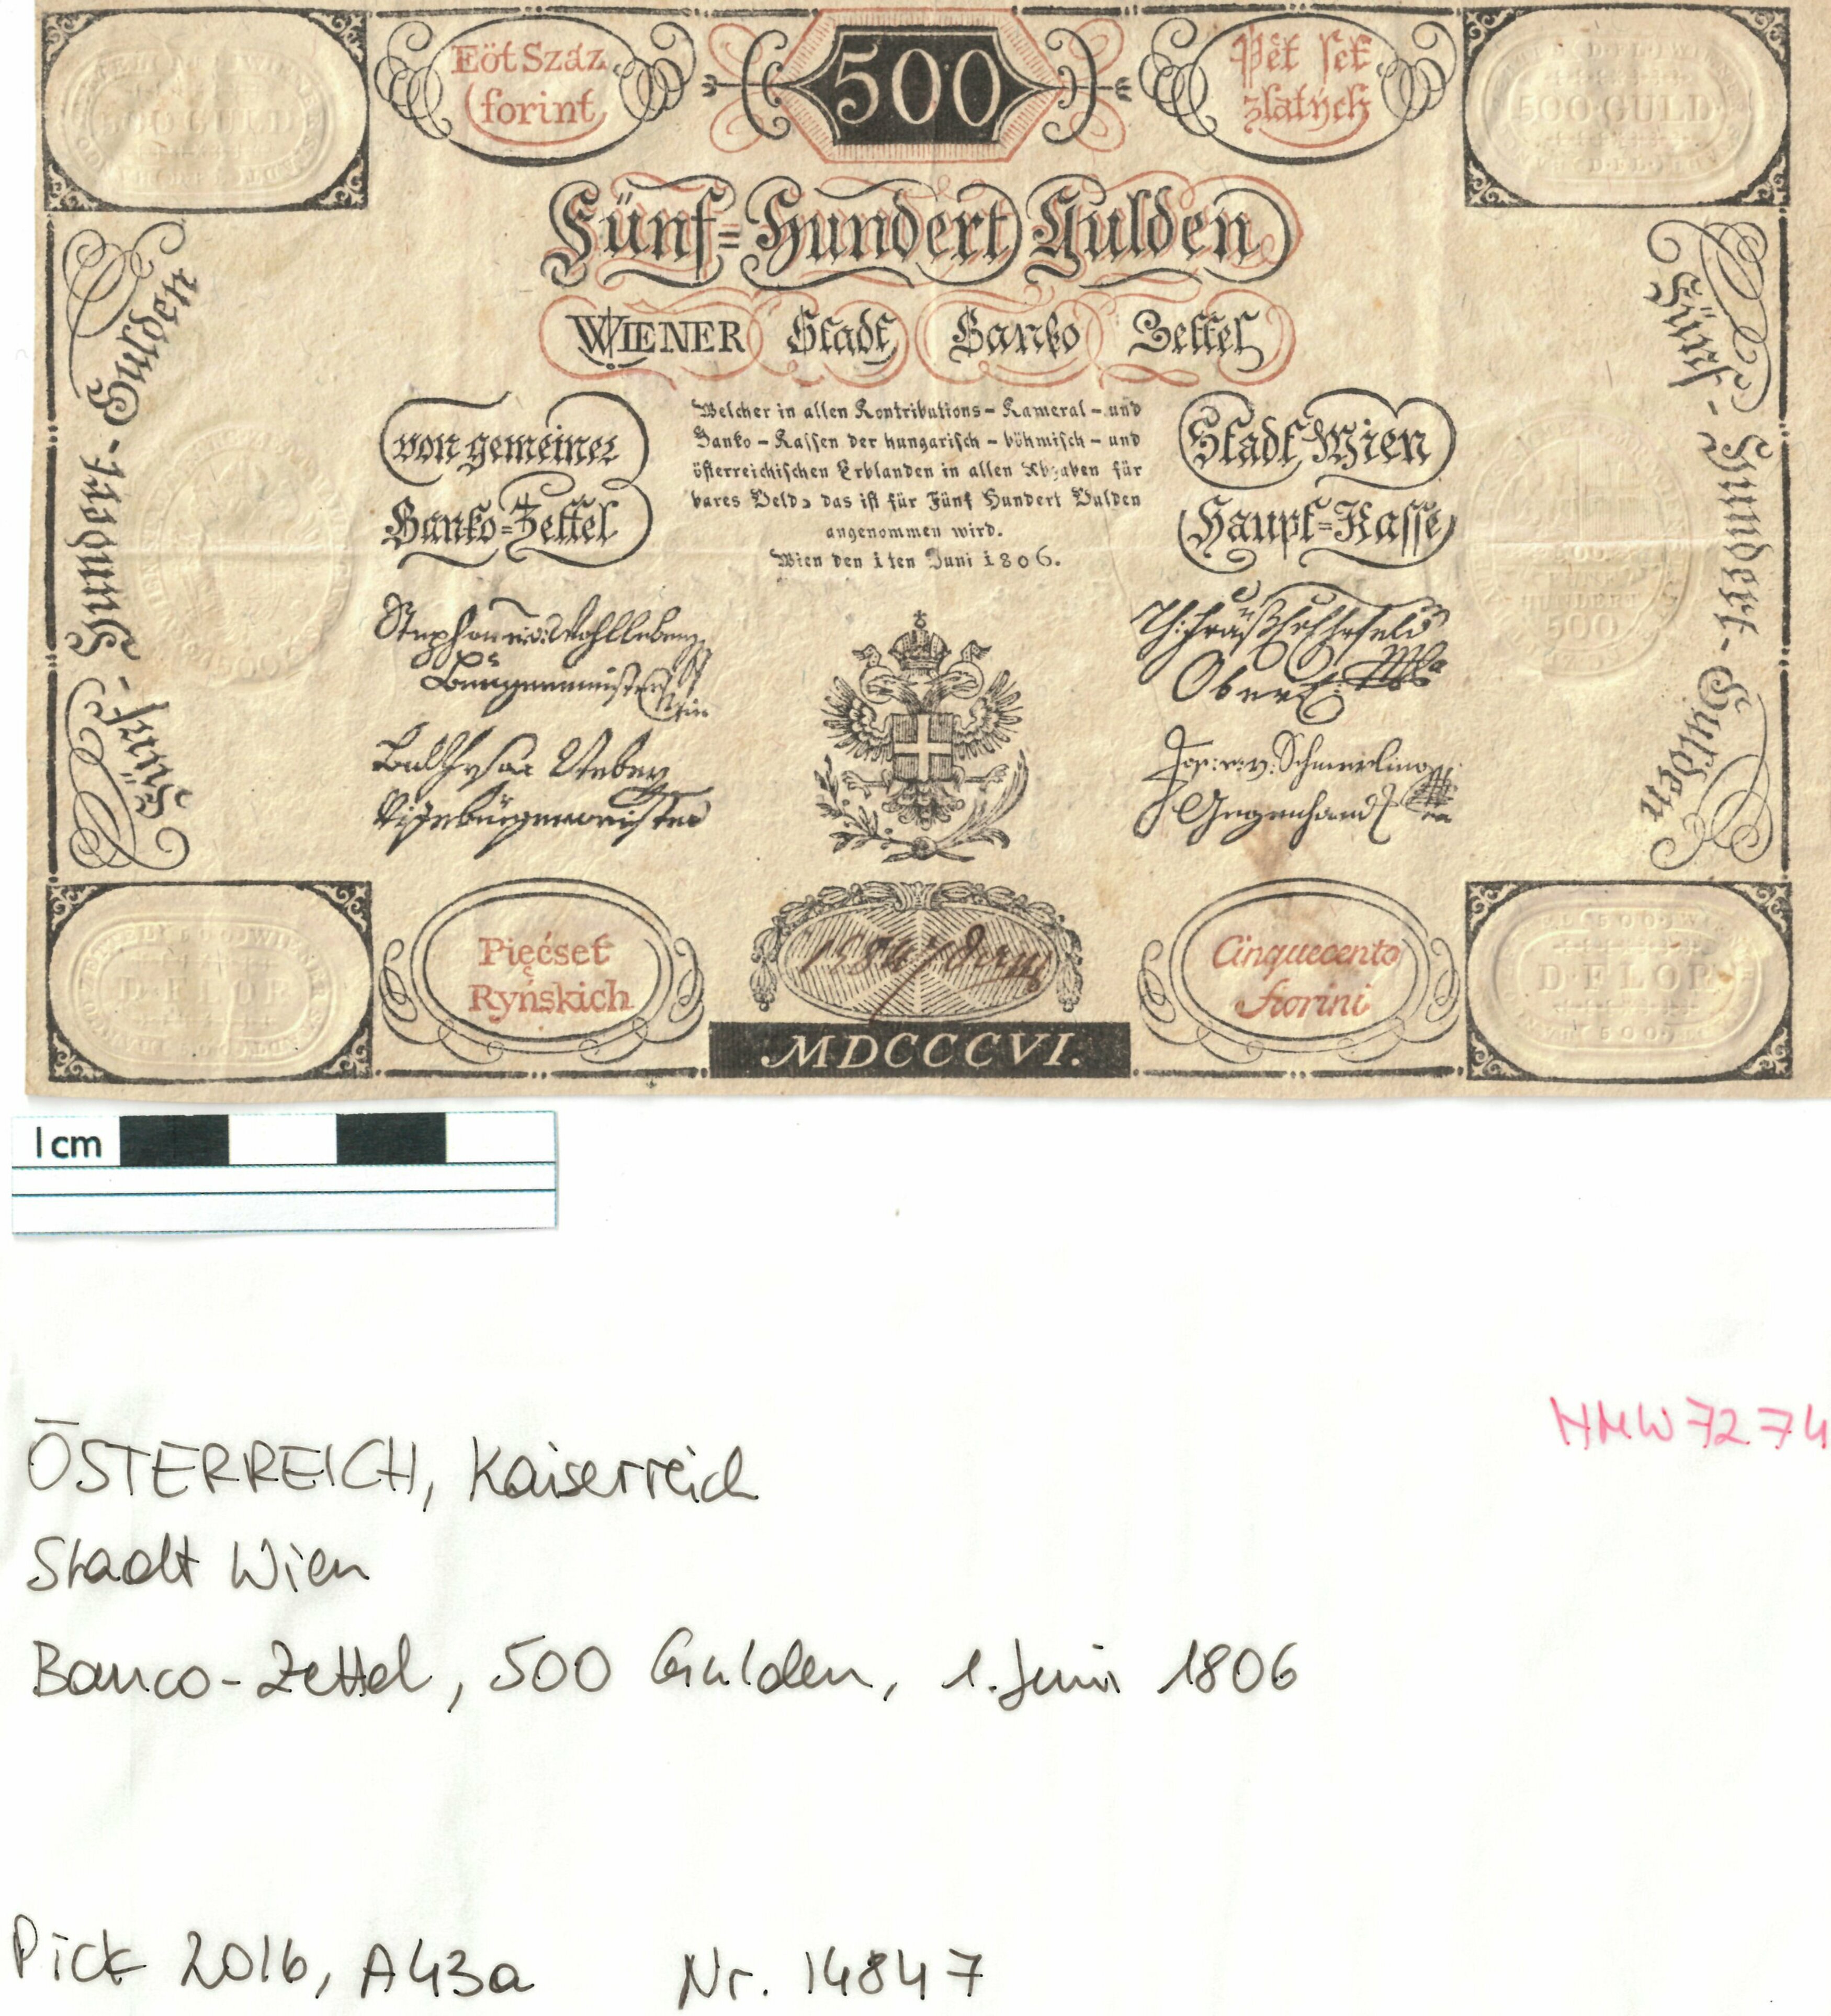 500 GULD
Eöt Száz
forint
500
Pět set
zlatých
500 GULD
Fünf=Hundert Gulden
WIENER Stadt Banko Zettel
Fünf-Hundert-Gulden
Fünf-Hundert-Gulden
von gemeiner
Banko=Zettel
Welcher in allen Kontributions-Kameral-und
Banko-Kassen der hungarisch-böhmisch-und
österreichischen Erblanden in allen Abgaben für
bares Geld, das ist für Fünf Hundert Gulden
angenommen wird.
Wien den 1ten Juni 1806.
Stadt Wien
Haupt=Kasse
500
Stephan v: Wohlleben
Burgermeister
Vizebürgermeister
Jos: v: Schmerling
Gegenhand
D·FLOR
Pięćset
Ryńskich
Cinquecento
fiorini
D·FLOR
MDCCCVI.
1cm
HMW 7274
ÖSTERREICH, Kaiserreich
Stadt Wien
Banco-Zettel, 500 Gulden, 1. Juni 1806
Pick 2016, A43a Nr. 14847